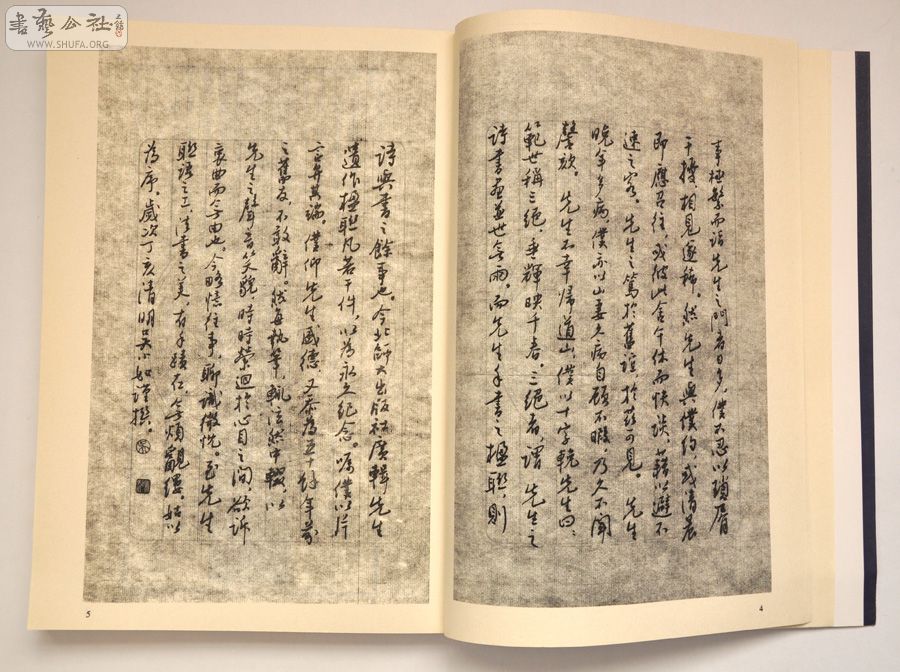 書藝公社
WWW.SHUFA.ORG
事極繁而詣先生之門者日多，僕不忍以瑣屑
干擾，相見遂稀。然先生與僕約，或清晨
即應吾往，或彼此舍午休而快談，藉以避不
速之客。先生之篤於舊誼，於茲可見。先生
晚年多病，僕亦以山妻久病自顧不暇，乃久不聞
謦欬。先生不幸歸道山，僕以十字輓先生曰：
範世稱三絕，垂輝映千春。三絕者，謂先生之
詩書畫並世無兩。而先生手書之楹聯，則
4
詩與書之餘事也。今北師大出版社廣輯先生
遺作楹聯凡若干件，以為永久紀念。囑僕以片
言弁其端。僕仰先生盛德，又忝為五十餘年前
之舊友，不敢辭。然每執筆，輒泫然中輟，以
先生之聲音笑貌，時時縈迴於心目之間，欲訴
衷曲而無由也。今略憶往事，聊識慨悅。至先生
聯語之工，法書之美，有手蹟在，無煩覼縷。姑以
為序。歲次丁亥清明吳小如謹撰。
5